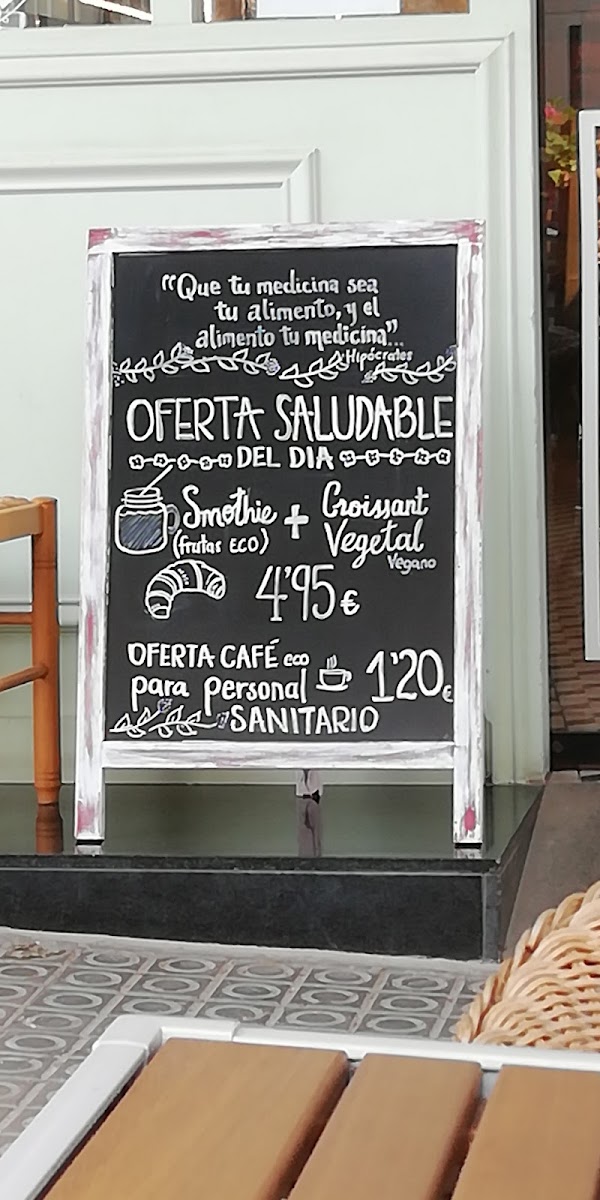 “Que tu medicina sea
tu alimento, y el
alimento tu medicina”...
Hipócrates
OFERTA SALUDABLE
DEL DIA
Smothie + Croissant
(frutas ECO) Vegetal
Vegano
4'95€
OFERTA CAFÉ eco
para personal 1'20€
SANITARIO